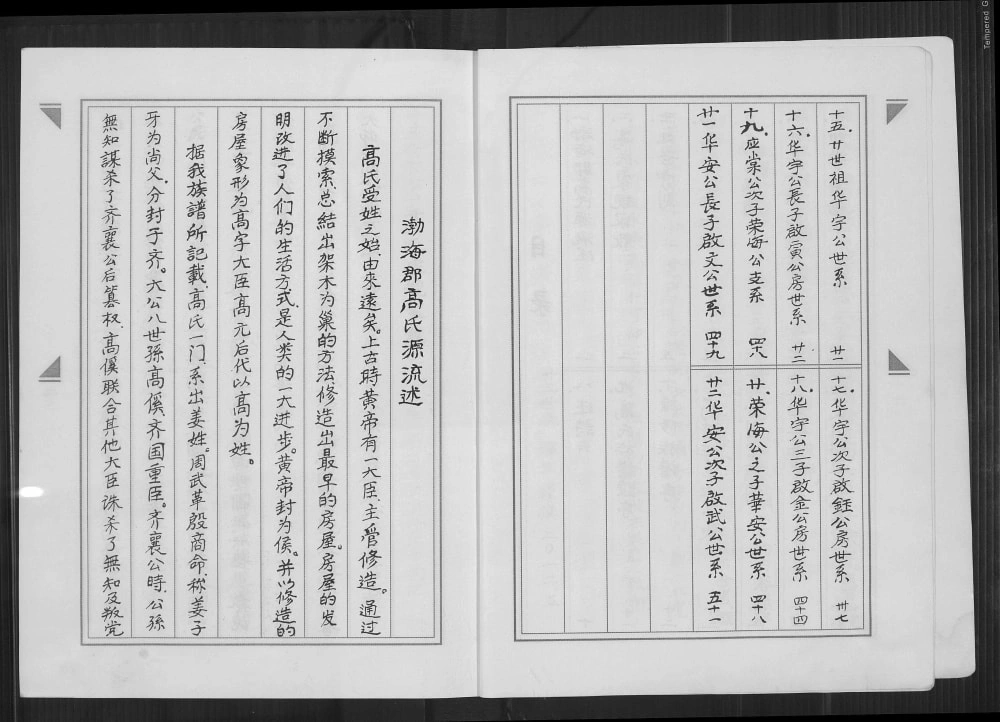 十五.廿世祖华宇公世系 廿一
十六.华宇公長子啟寅公房世系 廿二
十九.应棠公次子荣海公支系
廿一华安公長子啟文公世系 四十九
十七.华宇公次子啟鈺公房世系 卅七
十八.华宇公三子啟金公房世系 四十四
廿.荣海公之子華安公世系 四十八
廿二华安公次子啟武公世系 五十一
渤海郡高氏源流述
高氏受姓之始.由來遠矣。上古時黄帝有一大臣.主管修造。通过
不断摸索.总結出架木为巢的方法修造出最早的房屋。房屋的发
明改进了人们的生活方式.是人类的一大进步。黄帝封为侯。并以修造的
房屋象形为高字大臣高元后代以高为姓。
据我族譜所記載.高氏一门.系出姜姓。周武革殷商命.称姜子
牙为尚父.分封于齐。太公八世孫高傒齐国重臣。齐襄公時.公孫
無知謀杀了齐襄公后篡权.高傒联合其他大臣诛杀了無知及叛党
Tempered G